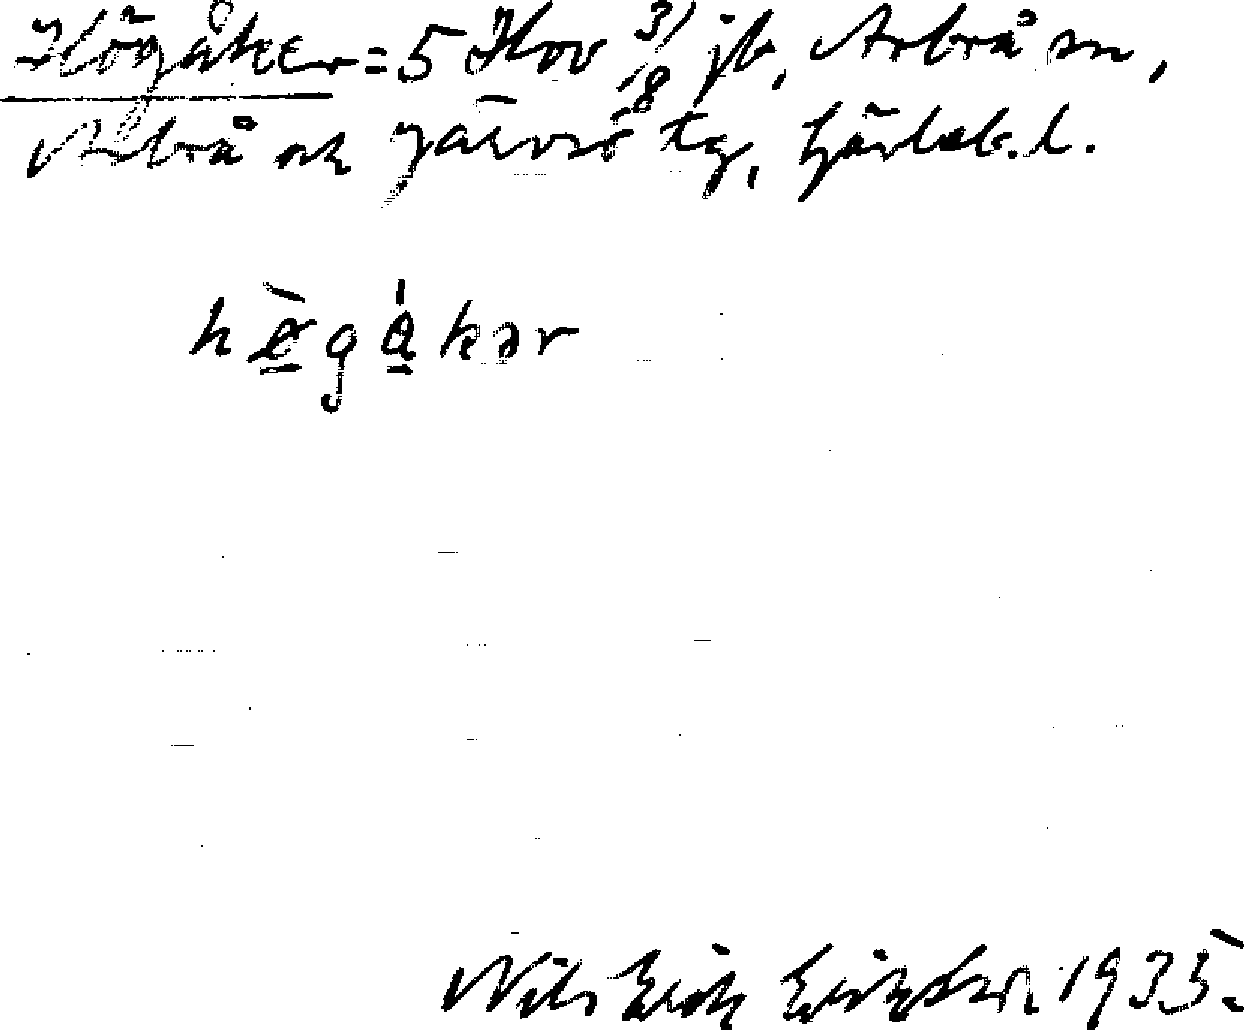 Högåker = 5 Hov 3/8 jb, Arbrå sn,
Arbrå och Järvsö tg, Gävleb. l.
hø̀gåkər
Nils Erik Eriksson 1935.